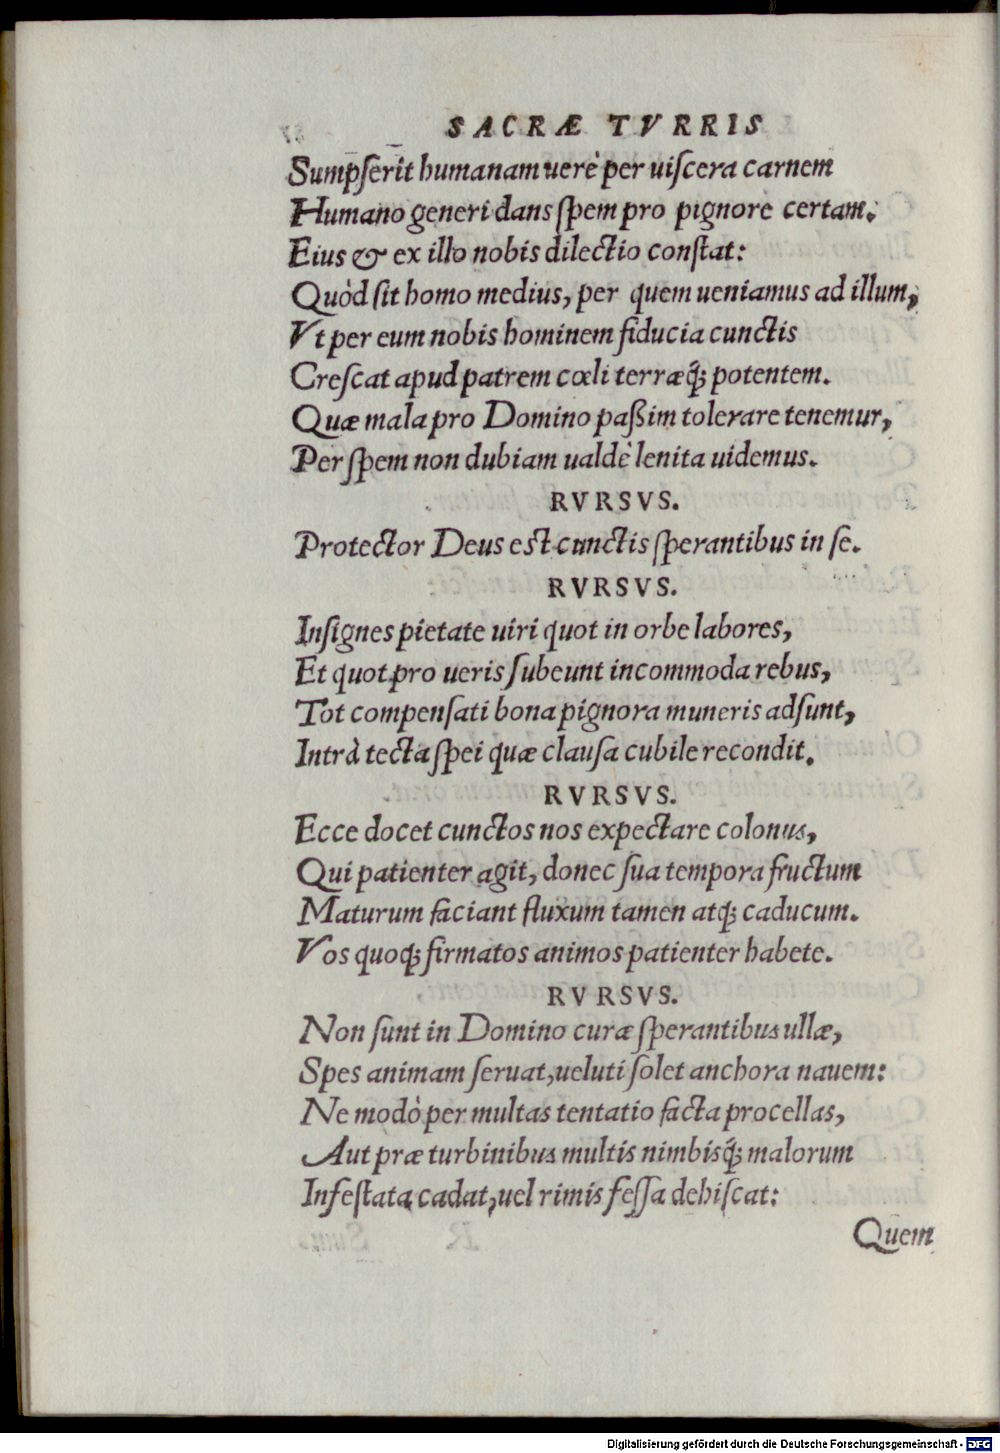 SACRÆ TVRRIS
Sumpserit humanam uerè per uiscera carnem
Humano generi dans spem pro pignore certam.
Eius & ex illo nobis dilectio constat:
Quòd sit homo medius, per quem ueniamus ad illum,
Vt per eum nobis hominem fiducia cunctis
Crescat apud patrem cœli terræq́; potentem.
Quæ mala pro Domino paßim tolerare tenemur,
Per spem non dubiam ualdè lenita uidemus.
RVRSVS.
Protector Deus est cunctis sperantibus in se.
RVRSVS.
Insignes pietate uiri quot in orbe labores,
Et quot pro ueris subeunt incommoda rebus,
Tot compensati bona pignora muneris adsunt,
Intrà tecta spei quæ clausa cubile recondit.
RVRSVS.
Ecce docet cunctos nos expectare colonus,
Qui patienter agit, donec sua tempora fructum
Maturum faciant fluxum tamen atq; caducum.
Vos quoq; firmatos animos patienter habete.
RVRSVS.
Non sunt in Domino curæ sperantibus ullæ,
Spes animam seruat, ueluti solet anchora nauem:
Ne modò per multas tentatio facta procellas,
Aut præ turbinibus multis nimbisq́; malorum
Infestata cadat, uel rimis fessa dehiscat:
Quem
Digitalisierung gefördert durch die Deutsche Forschungsgemeinschaft - DFG